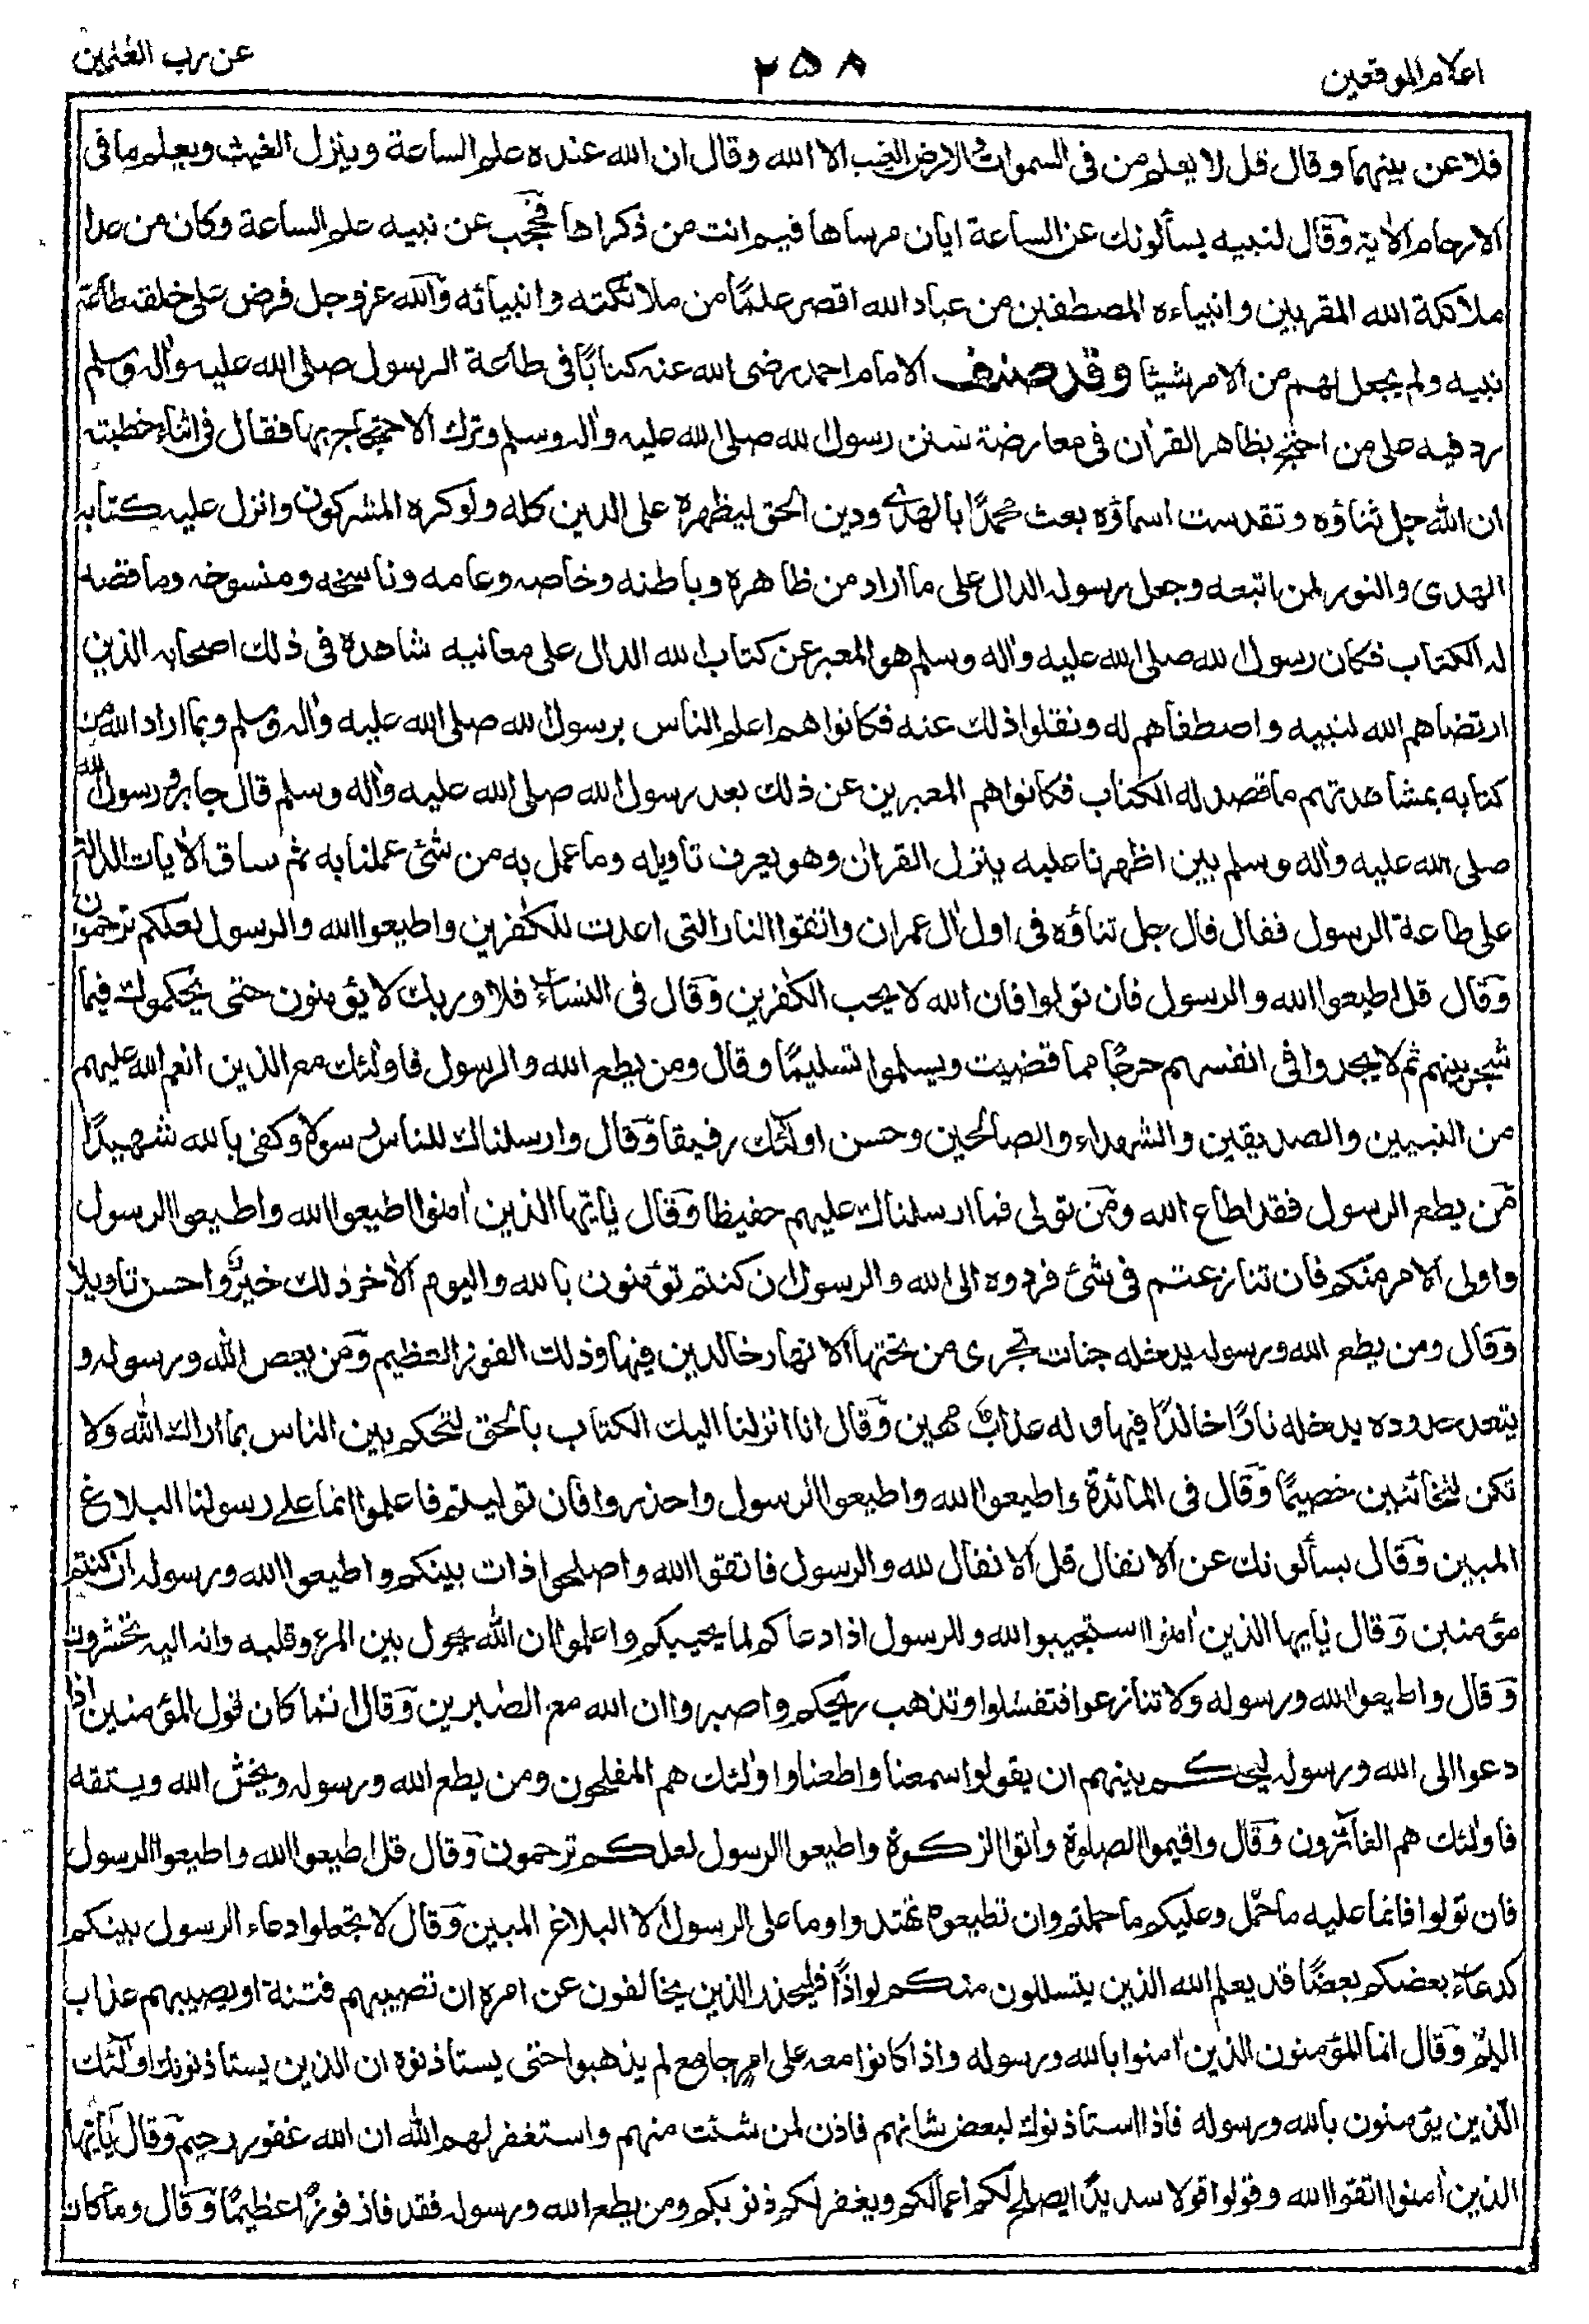 اعلام الموقعين
۲۵۸
عن رب العٰلمين
فلا عن بينهما وقال قل لا يعلم من في السموات والارض الغيب الا الله وقال ان الله عنده علم الساعة وينزل الغيث ويعلم ما في
الارحام الاٰية وقال لنبيه يسألونك عن الساعة ايان مرساها فيم انت من ذكراها فحجب عن نبيه علم الساعة وكان من عدا
ملائكة الله المقربين وانبياءه المصطفين من عباد الله اقصر علمًا من ملائكته وانبيائه والله عز وجل فرض على خلقه طاعة
نبيه ولم يجعل لهم من الامر شيئا وقد صنف الامام احمد رضى الله عنه كتابًا في طاعة الرسول صلى الله عليه واٰله وسلم
رد فيه على من احتج بظاهر القراٰن في معارضة سنن رسول الله صلى الله عليه واٰله وسلم وترك الاحتجاج بها فقال في اثناء خطبته
ان الله جل ثناؤه وتقدست اسماؤه بعث محمدًا بالهدى ودين الحق ليظهره على الدين كله ولو كره المشركون وانزل عليه كتابه
الهدى والنور لمن اتبعه وجعل رسوله الدال على ما اراد من ظاهره وباطنه وخاصه وعامه وناسخه ومنسوخه وما قصد
له الكتاب فكان رسول الله صلى الله عليه واٰله وسلم هو المعبر عن كتاب الله الدال على معانيه شاهده في ذلك اصحابه الذين
ارتضاهم الله لنبيه واصطفاهم له ونقلوا ذلك عنه فكانوا هم اعلم الناس برسول الله صلى الله عليه واٰله وسلم وبما اراد الله من
كتابه بمشاهدتهم ما قصد له الكتاب فكانوا هم المعبرين عن ذلك بعد رسول الله صلى الله عليه واٰله وسلم قال جابر ورسول الله
صلى الله عليه واٰله وسلم بين اظهرنا عليه ينزل القراٰن وهو يعرف تاويله وما عمل به من شئ عملنا به ثم ساق الاٰيات الدالة
على طاعة الرسول فقال قال جل ثناؤه في اول اٰل عمران واتقوا النار التى اعدت للكٰفرين واطيعوا الله والرسول لعلكم ترحمون
وقال قل اطيعوا الله والرسول فان تولوا فان الله لا يحب الكٰفرين وقال في النساء فلا وربك لا يؤمنون حتى يحكموك فيما
شجر بينهم ثم لا يجدوا في انفسهم حرجًا مما قضيت ويسلموا تسليمًا وقال ومن يطع الله والرسول فاولٰئك مع الذين انعم الله عليهم
من النبيين والصديقين والشهداء والصالحين وحسن اولٰئك رفيقا وقال وارسلناك للناس رسولا وكفى بالله شهيدًا
من يطع الرسول فقد اطاع الله ومن تولى فما ارسلناك عليهم حفيظا وقال يٰايها الذين اٰمنوا اطيعوا الله واطيعوا الرسول
واولى الامر منكم فان تنازعتم في شئ فردوه الى الله والرسول ان كنتم تؤمنون بالله واليوم الاٰخر ذلك خير واحسن تاويلا
وقال ومن يطع الله ورسوله يدخله جنات تجرى من تحتها الانهار خالدين فيها وذلك الفوز العظيم ومن يعص الله ورسوله و
يتعد حدوده يدخله نارًا خالدًا فيها وله عذاب مهين وقال انا انزلنا اليك الكتاب بالحق لتحكم بين الناس بما اراك الله ولا
تكن للخائنين خصيمًا وقال في المائدة واطيعوا الله واطيعوا الرسول واحذروا فان توليتم فاعلموا انما على رسولنا البلاغ
المبين وقال يسألونك عن الانفال قل الانفال لله والرسول فاتقوا الله واصلحوا ذات بينكم واطيعوا الله ورسوله ان كنتم
مؤمنين وقال يٰايها الذين اٰمنوا استجيبوا لله وللرسول اذا دعاكم لما يحييكم واعلموا ان الله يحول بين المرء وقلبه وانه اليه تحشرون
وقال واطيعوا الله ورسوله ولا تنازعوا فتفشلوا وتذهب ريحكم واصبروا ان الله مع الصٰبرين وقال انما كان قول المؤمنين اذا
دعوا الى الله ورسوله ليحكم بينهم ان يقولوا سمعنا واطعنا واولٰئك هم المفلحون ومن يطع الله ورسوله ويخش الله ويتقه
فاولٰئك هم الفائزون وقال واقيموا الصلوة واٰتوا الزكوة واطيعوا الرسول لعلكم ترحمون وقال قل اطيعوا الله واطيعوا الرسول
فان تولوا فانما عليه ما حمّل وعليكم ما حملتم وان تطيعوه تهتدوا وما على الرسول الا البلاغ المبين وقال لا تجعلوا دعاء الرسول بينكم
كدعاء بعضكم بعضًا قد يعلم الله الذين يتسللون منكم لواذًا فليحذر الذين يخالفون عن امره ان تصيبهم فتنة او يصيبهم عذاب
اليم وقال انما المؤمنون الذين اٰمنوا بالله ورسوله واذا كانوا معه على امر جامع لم يذهبوا حتى يستاذنوه ان الذين يستاذنونك اولٰئك
الذين يؤمنون بالله ورسوله فاذا استاذنوك لبعض شانهم فاذن لمن شئت منهم واستغفر لهم الله ان الله غفور رحيم وقال يٰايها
الذين اٰمنوا اتقوا الله وقولوا قولا سديدًا يصلح لكم اعمالكم ويغفر لكم ذنوبكم ومن يطع الله ورسوله فقد فاز فوزًا عظيمًا وقال وما كان